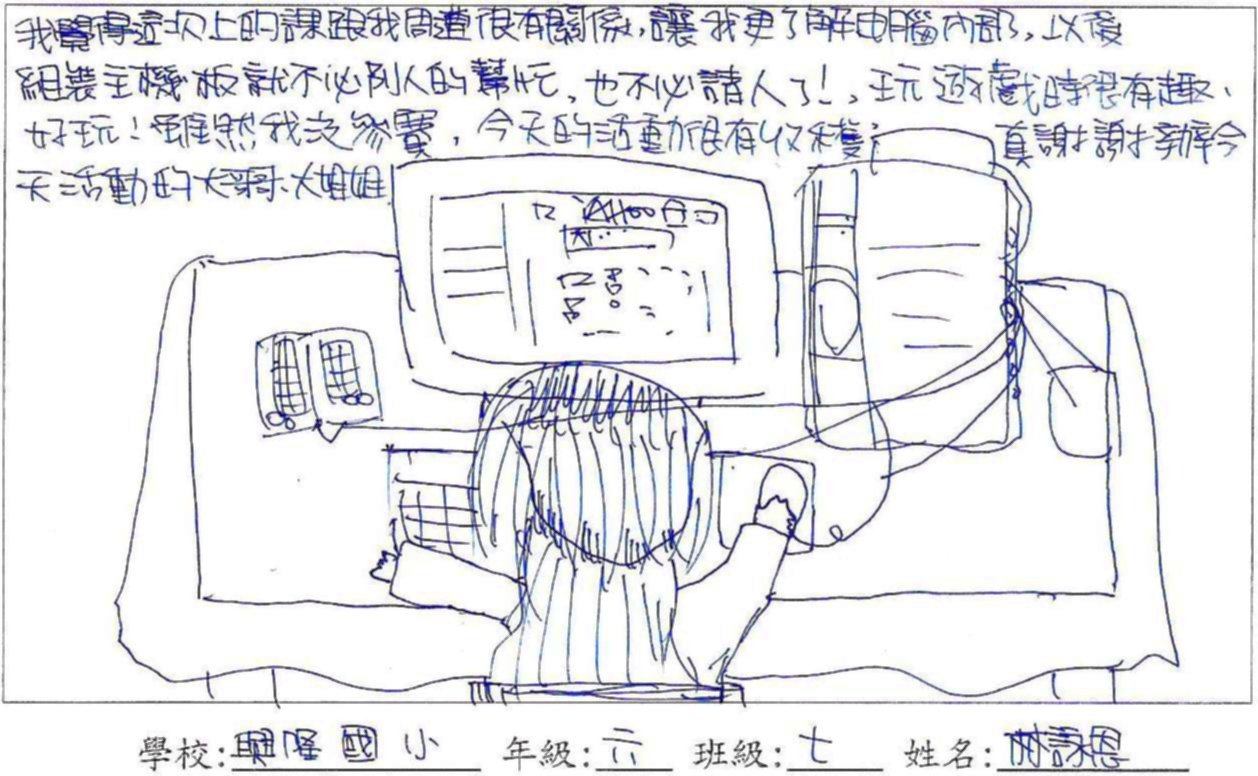 我覺得這次上的課跟我周遭很有關係,讓我更了解電腦內部,以後
組裝主機板就不必別人的幫忙,也不必請人了!,玩遊戲時很有趣、
好玩!雖然我沒參賽,今天的活動很有收穫 真謝謝辦今
天活動的大哥、大姐姐
YAHOO
學校:興隆國小 年級:六 班級:七 姓名:林詠恩